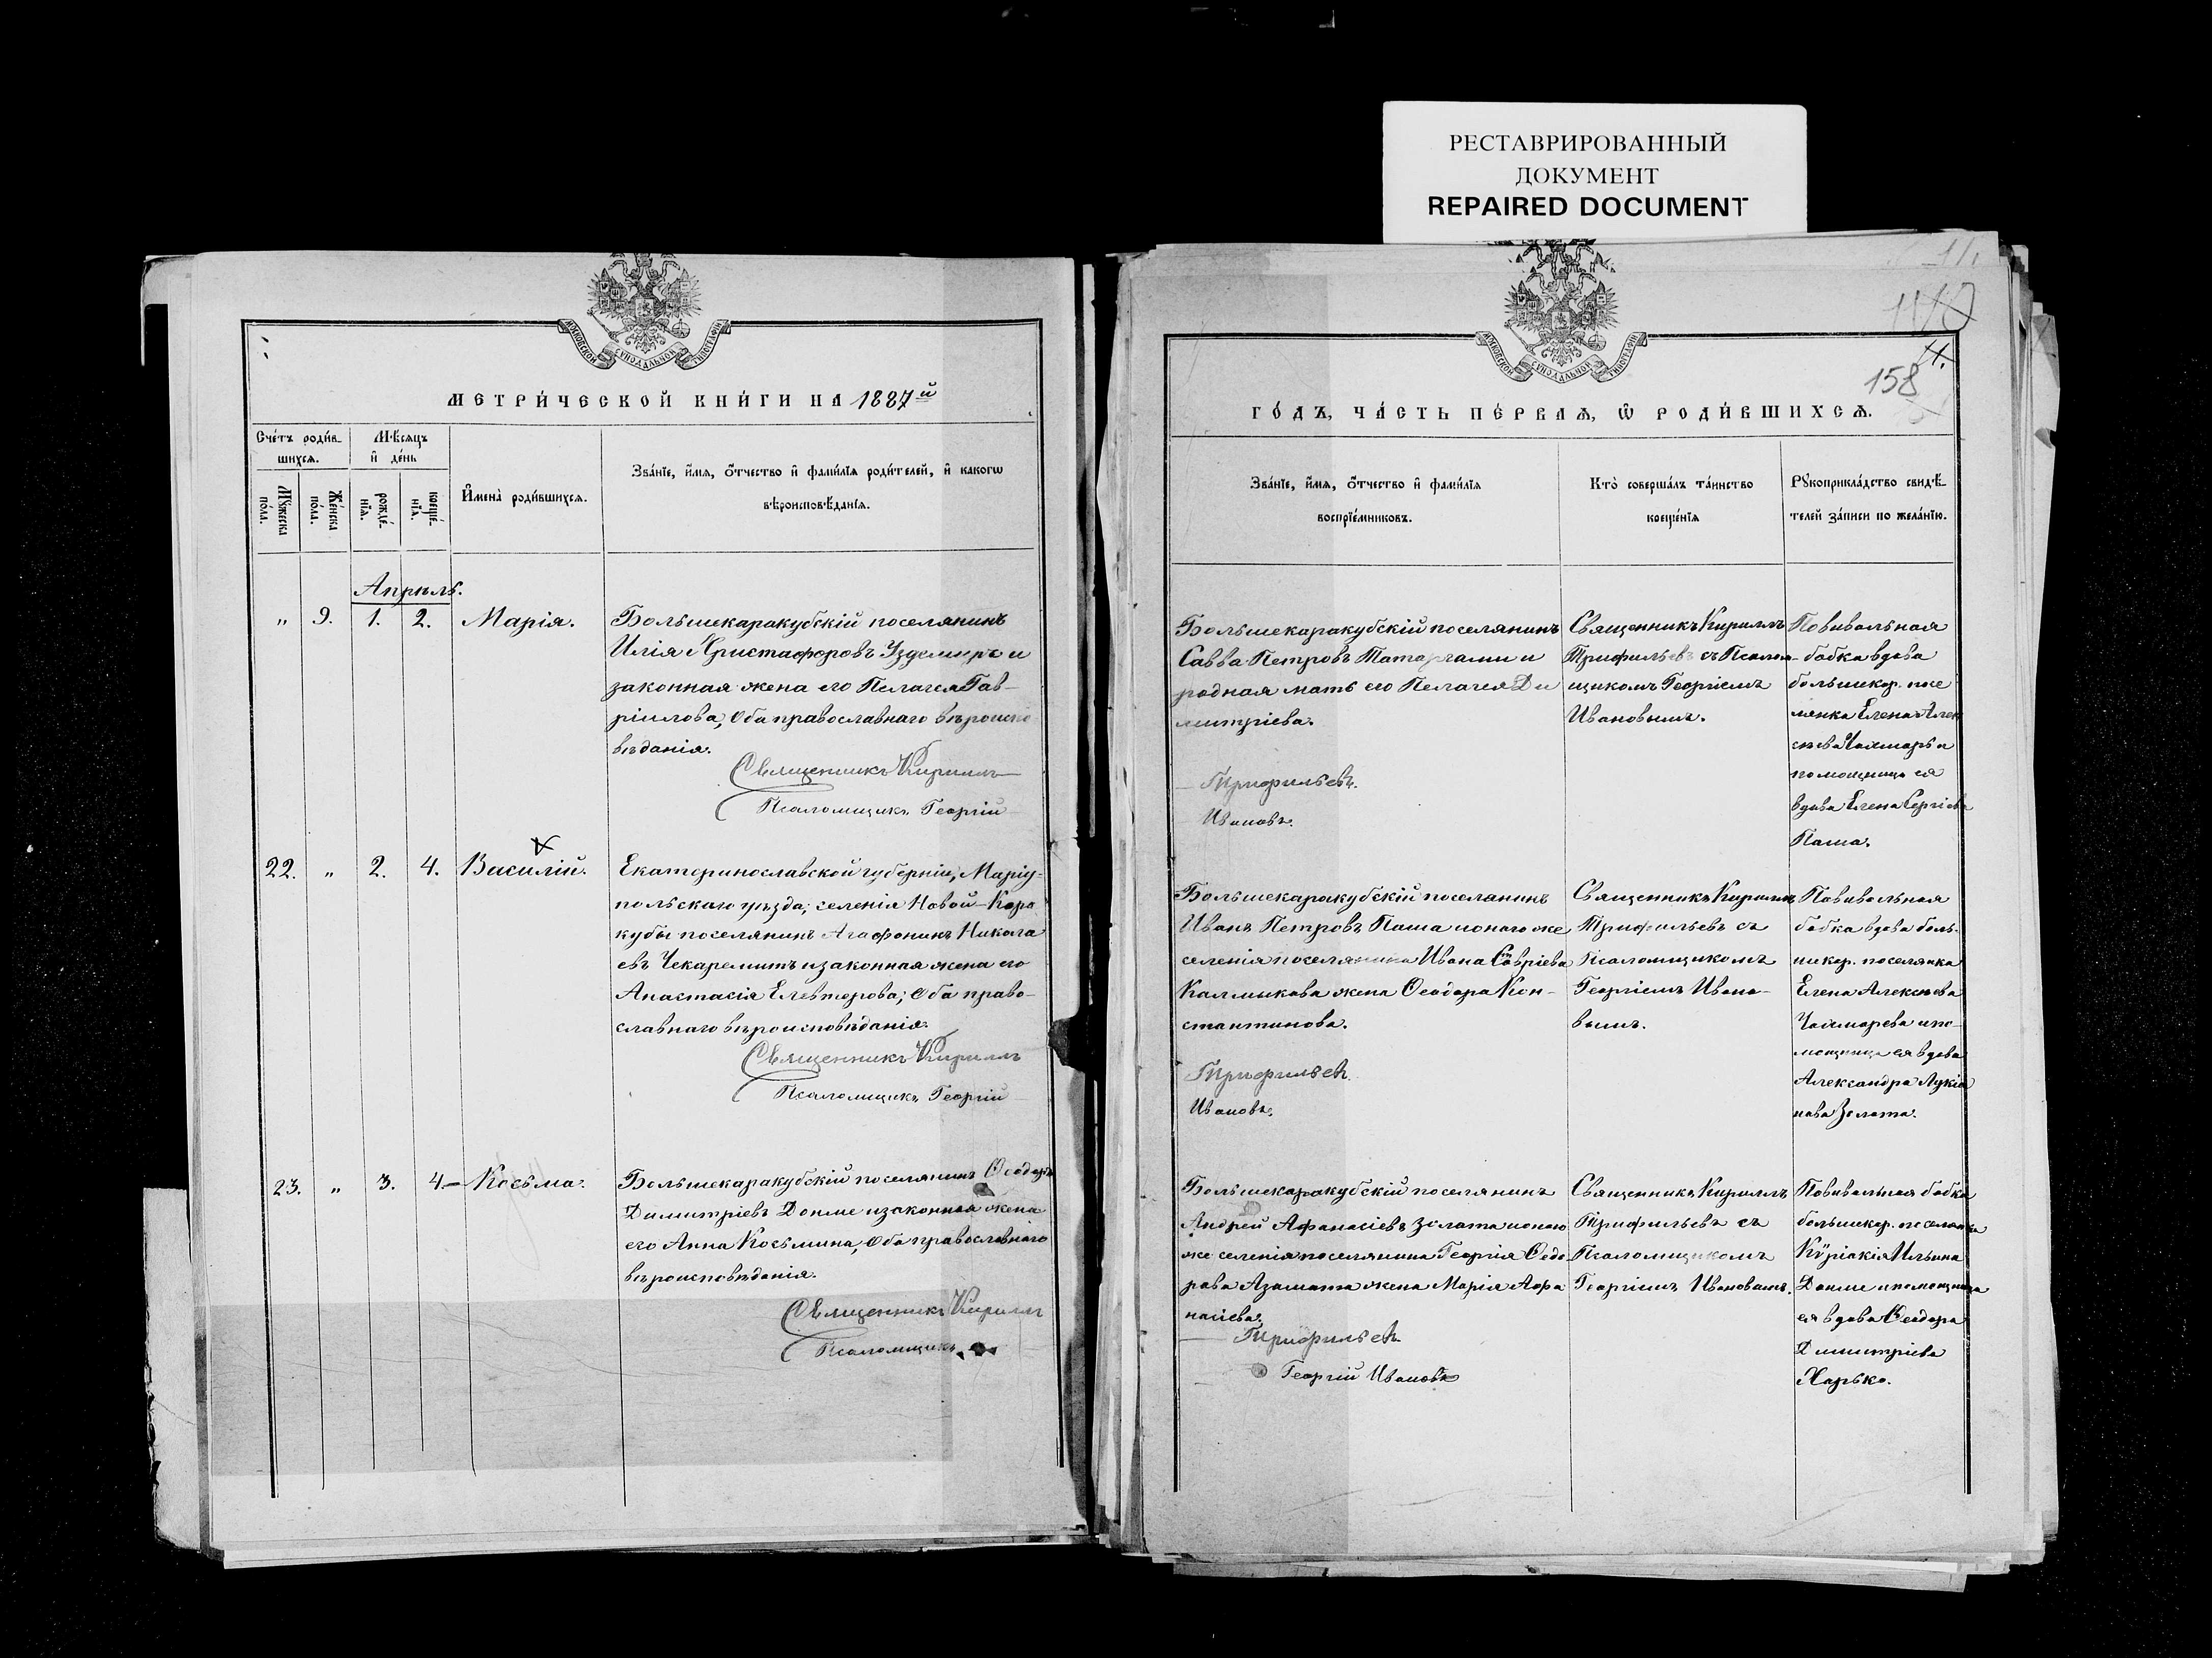 РЕСТАВРИРОВАННЫЙ
ДОКУМЕНТ
REPAIRED DOCUMENT
МОСКОВСКОЙ СѴНОДАЛЬНОЙ ТИПОГРАФІИ
МЕТРИ́ЧЕСКОЙ КНИ́ГИ НА 1887й
Сче́тъ роди́в-
шихсѧ.
Мѣ́сяцъ
и҆ де́нь
Мꙋ́жеска
по́ла.
Же́нска
по́ла.
рожде́-
нїѧ.
креще́-
нїѧ.
И҆мена̀ роди́вшихсѧ.
Зва́нїе, и҆́мѧ, ѻ҆́тчество и҆ фами́лїѧ роди́телей, и҆ какогѡ
вѣроисповѣ́данїѧ.
Апрѣль.
" 9. 1. 2. Марія.
Большекаракубскій поселянинъ
Илія Христофоровъ Уздемиръ и
законная жена его Пелагея Гав-
ріилова, Оба православнаго вѣроиспо
вѣданія.
Священникъ Кириллъ
Псаломщикъ Георгій
22. " 2. 4. Василій.
Екатеринославской губерніи, Маріу-
польскаго уѣзда; селенія Новой-Кара
кубы поселянинъ Агафоникъ Никола
евъ Чекаремитъ и законная жена его
Анастасія Елевтерова; Оба право-
славнаго вѣроисповѣданія.
Священникъ Кириллъ
Псаломщикъ Георгій
23. " 3. 4. Косьма.
Большекаракубскій поселянинъ Ѳеодоръ
Димитріевъ Донме и законная жена
его Анна Косьмина, Оба православнаго
вѣроисповѣданія.
Священникъ Кириллъ
Псаломщикъ
11.
158
ГО́ДЪ, ЧА́СТЬ ПЕ́РВАѦ, Ѿ РОДИ́ВШИХСѦ.
МОСКОВСКОЙ СѴНОДАЛЬНОЙ ТИПОГРАФІИ
Зва́нїе, и҆́мѧ, ѻ҆́тчество и҆ фами́лїѧ
воспрїе́мниковъ.
Кто̀ соверша́лъ та́инство
креще́нїѧ
Рꙋкоприкла́дство свидѣ́-
телей за́писи по жела́нїю.
Большекаракубскій поселянинъ
Савва Петровъ Татарлами и
родная мать его Пелагея Ди
митріева.
Трифильевъ.
Ивановъ.
Священникъ Кириллъ
Трифильевъ съ Псалом-
щикомъ Георгіемъ
Ивановымъ.
Повивальная
бабка вдова
большекар. посе
лянка Елена Алек
сѣева Чахмарь и
помощница ея
вдова Елена Сергіева
Паша.
Большекаракубскій поселянинъ
Иванъ Петровъ Паша и онаго же
селенія поселянина Ивана Савріева
Калмыкова жена Ѳеодора Кон-
стантинова.
Трифильевъ.
Ивановъ.
Священникъ Кириллъ
Трифильевъ съ
Псаломщикомъ
Георгіемъ Ивано-
вымъ.
Повивальная
бабка вдова боль-
шекар. поселянка
Елена Алексѣева
Чахмарева и по-
мощница ея вдова
Александра Лукіа
нова Золота.
Большекаракубскій поселянинъ
Андрей Афанасіевъ Золата и онаго
же селенія поселянина Георгія Ѳеодо
рова Азамата жена Марія Афа
насіева.
Трифильевъ
Георгій Ивановъ
Священникъ Кириллъ
Трифильевъ съ
Псаломщикомъ
Георгіемъ Ивановымъ.
Повивальная бабка
большекар. поселянка
Кѵріакія Ильина
Донме и помощница
ея вдова Ѳеодора
Димитріева
Харько.